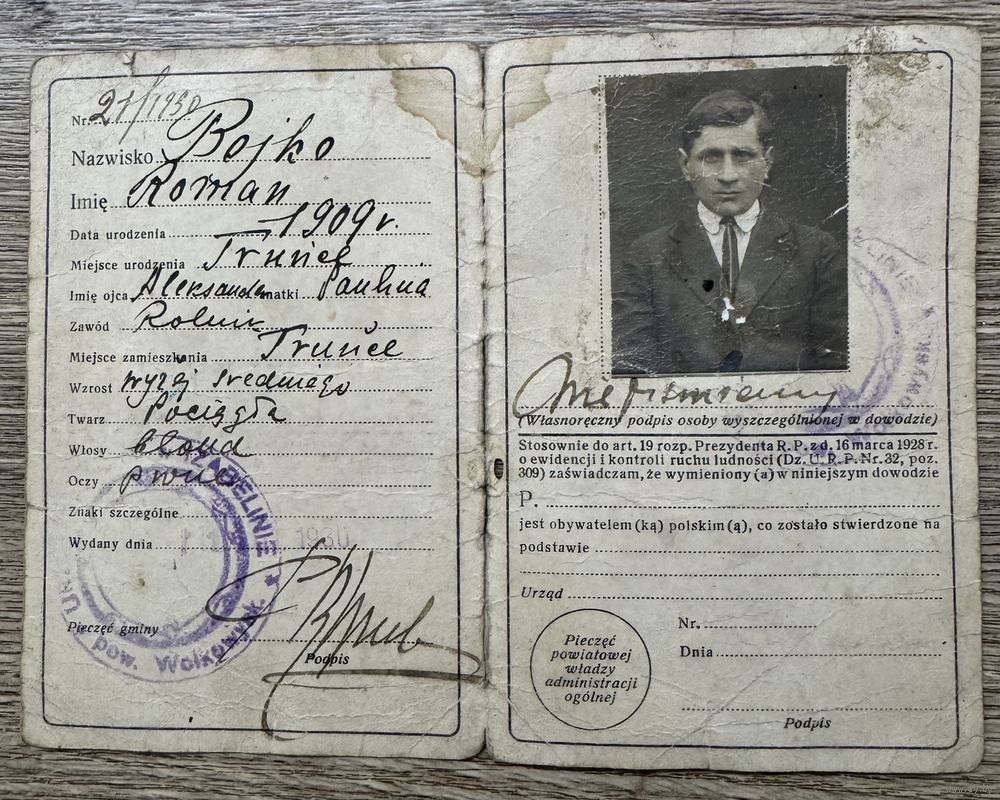 Nr. 21/1930
Nazwisko Bojko
Imię Roman
Data urodzenia 1909 r.
Miejsce urodzenia
Imię ojca Aleksander matki Paulina
Zawód Rolnik
Miejsce zamieszkania
Wzrost wyżej średniego
Twarz Pociągła
Włosy blond
Oczy piwne
Znaki szczególne
Wydany dnia 1930
Pieczęć gminy
ZABELINIE
pow. Wołkowysk.
Podpis
niepiśmienny
(Własnoręczny podpis osoby wyszczególnionej w dowodzie)
Stosownie do art. 19 rozp. Prezydenta R. P. z d. 16 marca 1928 r.
o ewidencji i kontroli ruchu ludności (Dz. U. R. P. Nr. 32, poz.
309) zaświadczam, że wymieniony (a) w niniejszym dowodzie
P.
jest obywatelem (ką) polskim (ą), co zostało stwierdzone na
podstawie
Urząd
Nr.
Dnia
Pieczęć
powiatowej
władzy
administracji
ogólnej
Podpis